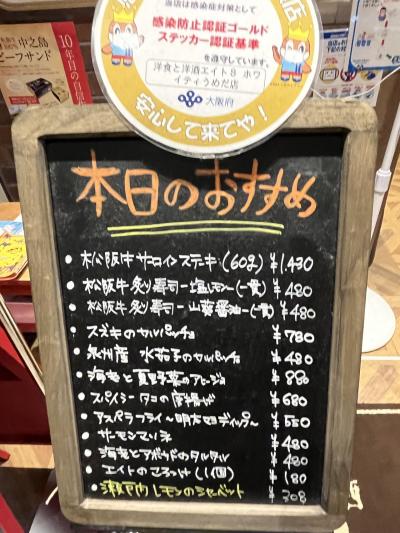 中之島
ビーフサンド
当店は感染症対策として
感染防止認証ゴールド
ステッカー認証基準
を遵守しています。
洋食と洋酒エイト8 ホワ
イティうめだ店
大阪府
安心して来てや!
本日のおすすめ
・松阪牛サーロインステーキ(60g) ¥1,430
・松阪牛炙り寿司ー塩レモンー(一貫) ¥480
・松阪牛炙り寿司ー山葵醤油ー(一貫) ¥480
・スズキのカルパッチョ ¥780
・泉州産 水茄子のカルパッチョ ¥480
・海老と夏野菜のアヒージョ ¥880
・スパイシータコの唐揚げ ¥680
・アスパラフライ〜明太マヨディップ〜 ¥550
・サーモンマリネ ¥480
・海老とアボカドのタルタル ¥480
・エイトのころっけ(1個) ¥180
・瀬戸内レモンのシャーベット 308